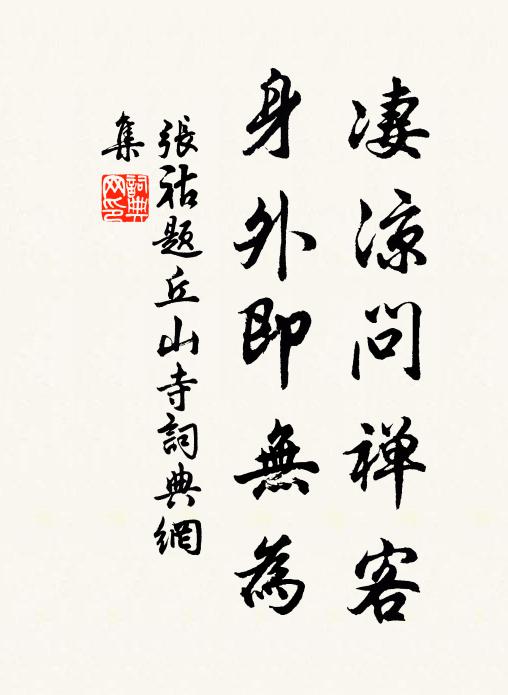 凄涼問禅客
身外即無為
張祜題丘山寺詞典網
集
詞典
网印